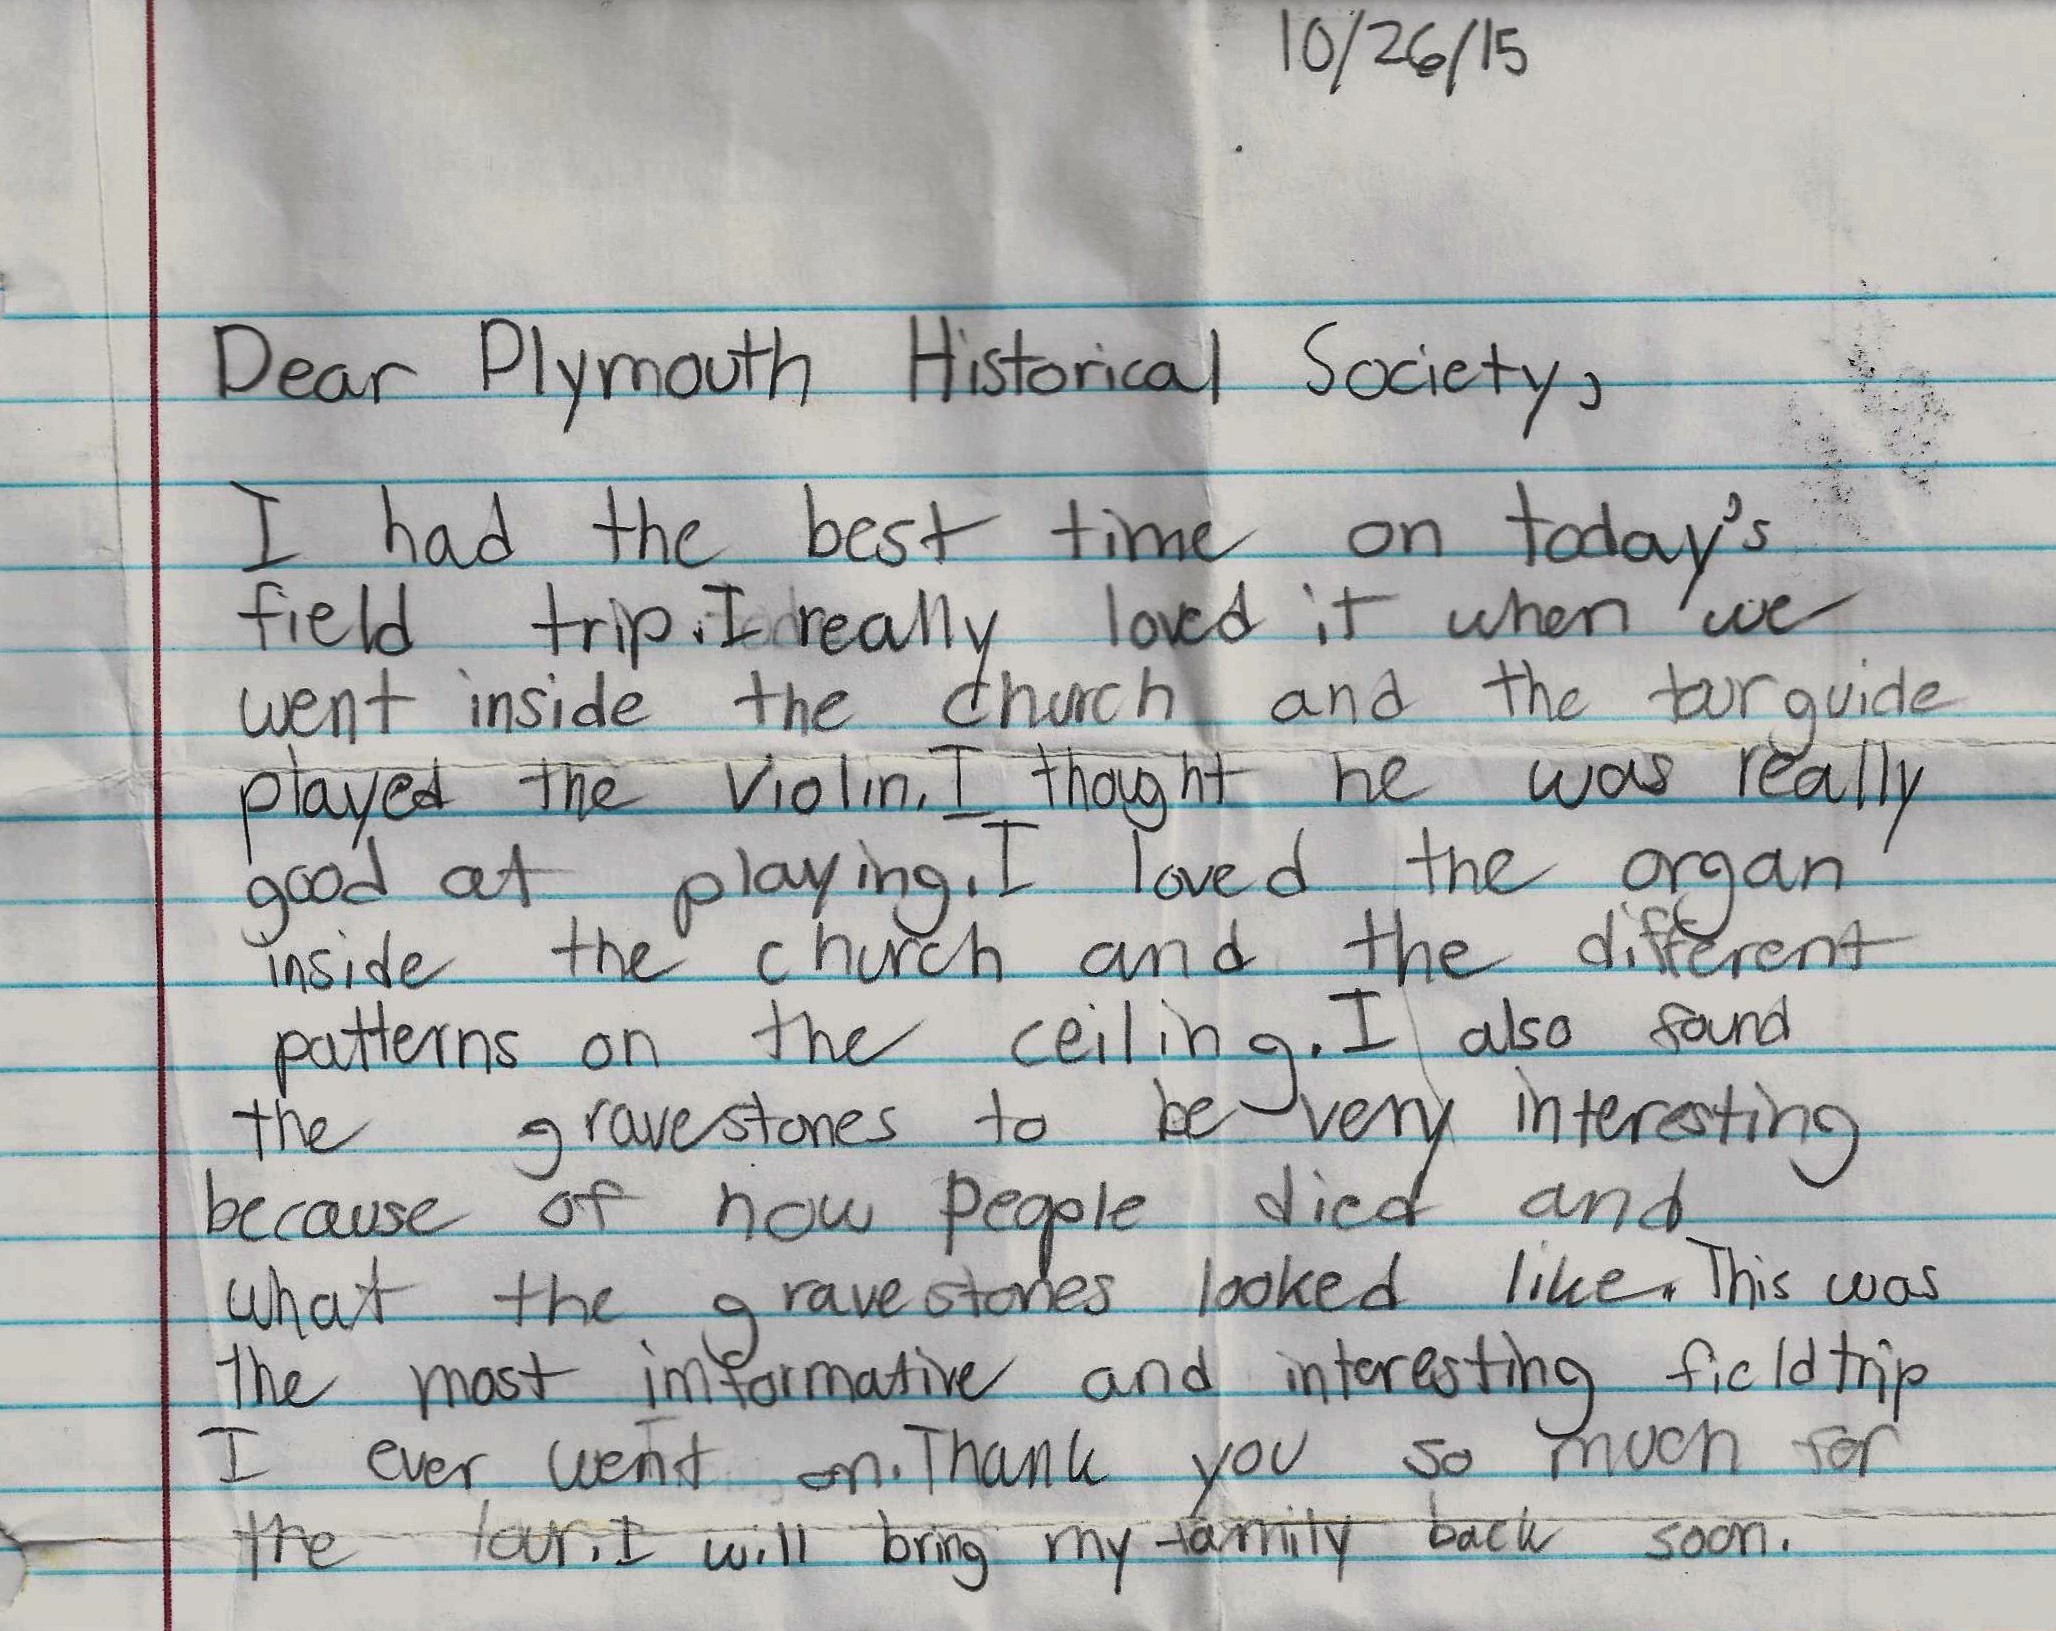 10/26/15
Dear Plymouth Historical Society,
I had the best time on today's
field trip. I really loved it when we
went inside the church and the tour guide
played the violin. I thought he was really
good at playing. I loved the organ
inside the church and the different
patterns on the ceiling. I also found
the gravestones to be very interesting
because of how people died and
what the gravestones looked like. This was
the most imformative and interesting field trip
I ever went on. Thank you so much for
the tour. I will bring my family back soon.